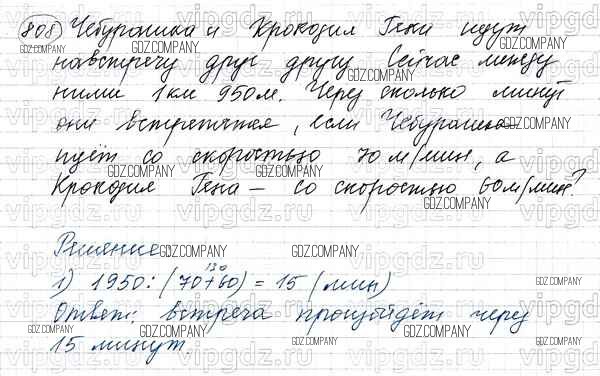 808) Чебурашка и Крокодил Гена идут
навстречу друг другу. Сейчас между
ними 1 км 950 м. Через сколько минут
они встретятся, если Чебурашка
идёт со скоростью 70 м/мин, а
Крокодил Гена – со скоростью 60 м/мин?
Решение
130
1) 1950 : (70+60) = 15 (мин)
Ответ: встреча произойдёт через
15 минут.
GDZ.COMPANY
vipgdz.ru